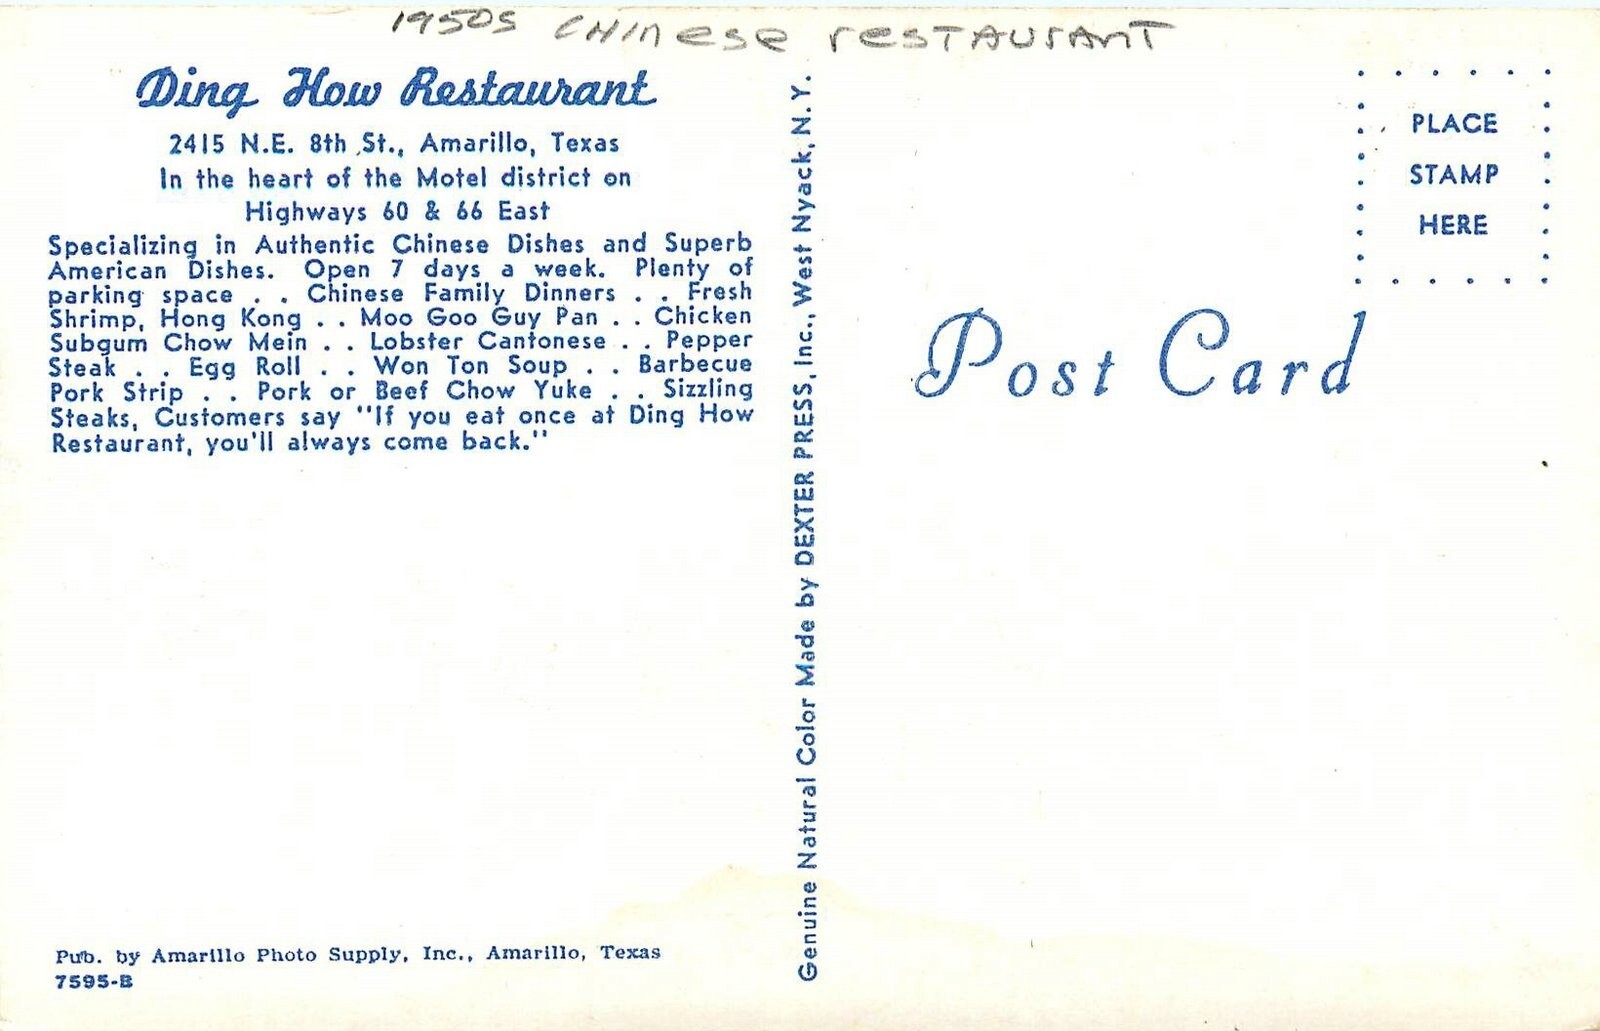 1950s Chinese restaurant
Ding How Restaurant
2415 N.E. 8th St., Amarillo, Texas
In the heart of the Motel district on
Highways 60 & 66 East
Specializing in Authentic Chinese Dishes and Superb
American Dishes. Open 7 days a week. Plenty of
parking space . . Chinese Family Dinners . . Fresh
Shrimp, Hong Kong . . Moo Goo Guy Pan . . Chicken
Subgum Chow Mein . . Lobster Cantonese . . Pepper
Steak . . Egg Roll . . Won Ton Soup . . Barbecue
Pork Strip . . Pork or Beef Chow Yuke . . Sizzling
Steaks, Customers say "If you eat once at Ding How
Restaurant, you'll always come back."
Pub. by Amarillo Photo Supply, Inc., Amarillo, Texas
7595-B
Genuine Natural Color Made by DEXTER PRESS, Inc., West Nyack, N.Y.
PLACE
STAMP
HERE
Post Card